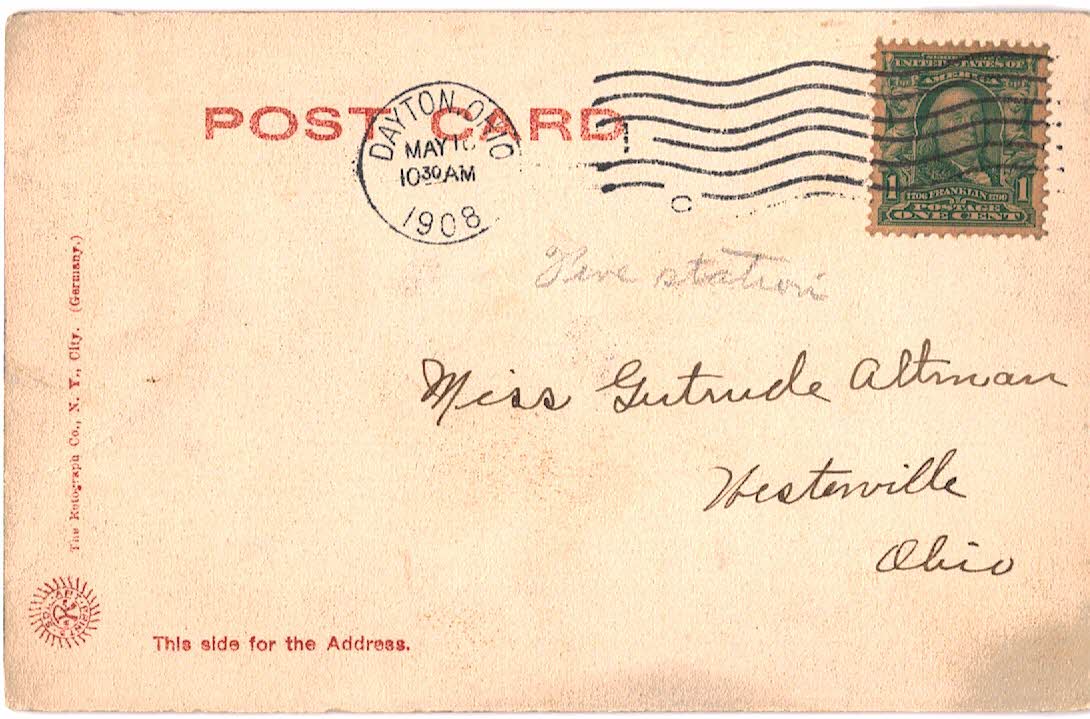 POST CARD
DAYTON, OHIO
MAY
10 30 AM
1908
UNITED STATES OF
AMERICA
1 1706 FRANKLIN 1790 1
POSTAGE
ONE CENT
station
Miss Gertrude Altman
Westerville
Ohio
The Rotograph Co., N. Y., City. (Germany.)
This side for the Address.